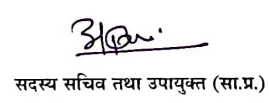 सदस्य सचिव तथा उपायुक्त (सा.प्र.)